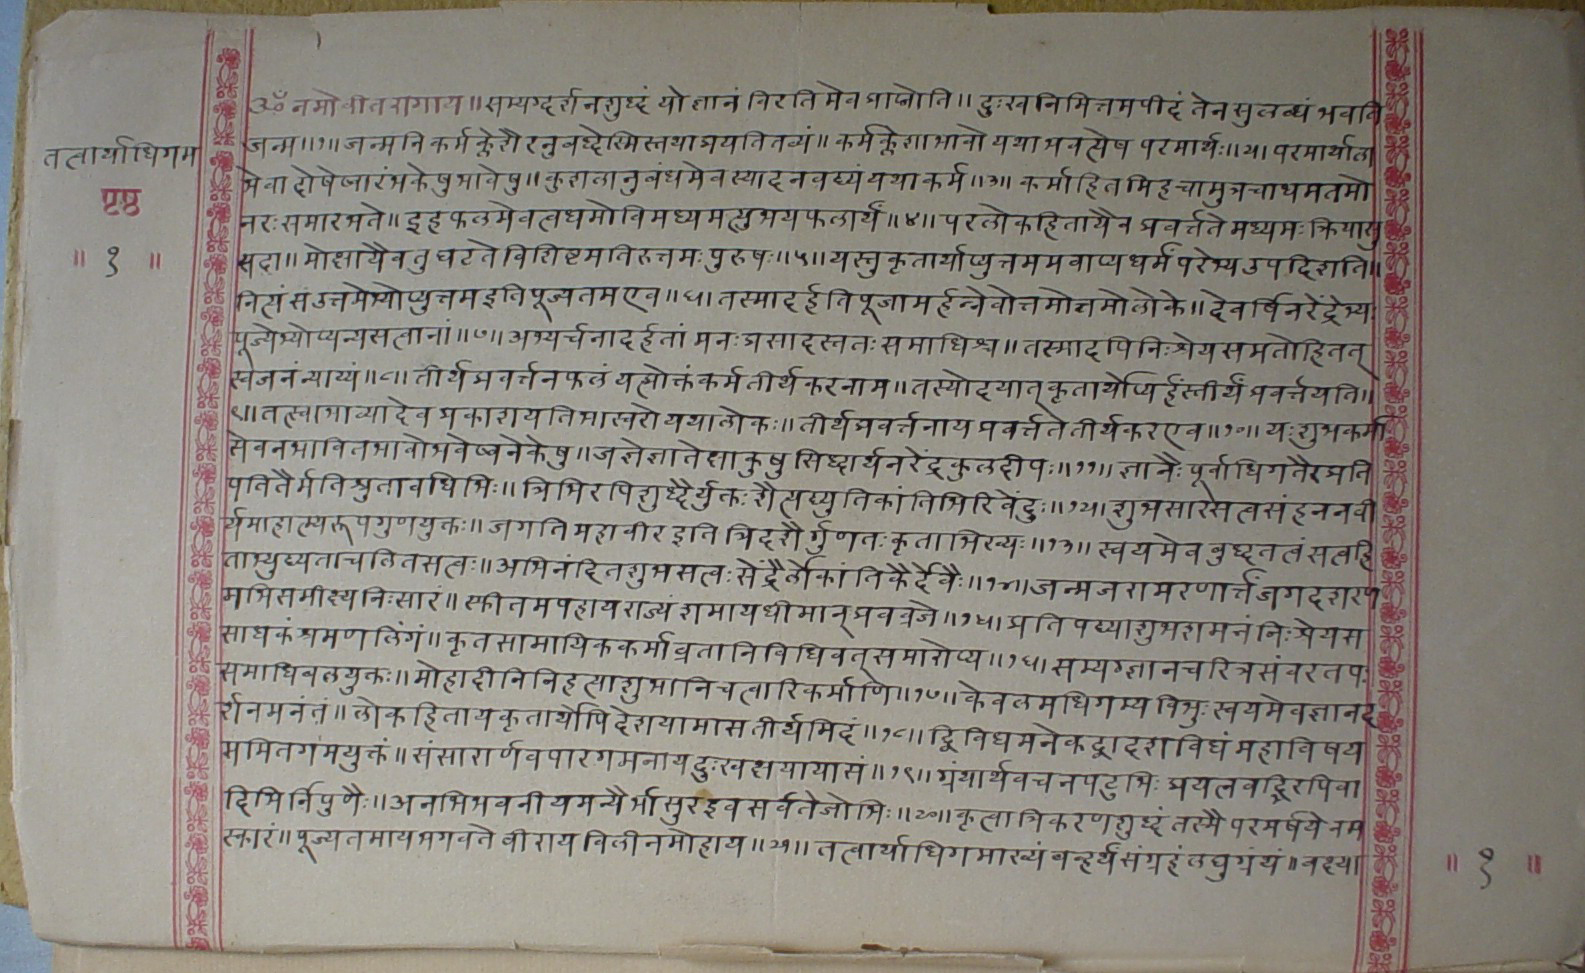 ॐ नमो वीतरागाय ॥ सम्यग्दर्शनशुद्धं यो ज्ञानं विरतिमेव प्राप्नोति ॥ दुःखनिमित्तमपीदं तेन सुलब्धं भवति
तत्वार्थाधिगम
जन्म ॥१॥ जन्मनि कर्मक्लेशैरनुबद्धेस्मिस्तथा प्रयतितव्यं ॥ कर्मक्लेशाभावो यथा भवत्येष परमार्थः ॥२॥ परमार्थाला
पृष्ठ
भेवा दोषेष्वारंभकेषुभावेषु ॥ कुशलानुबंधमेव स्यादनवद्यं यथा कर्म ॥३॥ कर्माहितमिह चामुत्र चाधमतमो
नरः समारभते ॥ इह फलमेव त्वधमो विमध्यमस्तुभयफलार्थं ॥४॥ परलोकहितायैव प्रवर्त्तते मध्यमः क्रियासु
॥ १ ॥
सदा ॥ मोक्षायैव तु घटते विशिष्टमतिरुत्तमः पुरुषः ॥५॥ यस्तु कृतार्थोप्युत्तममवाप्य धर्मं परेभ्य उपदिशति ॥
नित्यं स उत्तमेभ्योप्युत्तम इति पूज्यतम एव ॥६॥ तस्मादर्हति पूजामर्हन्नेवोत्तमोत्तमो लोके ॥ देवर्षिनरेंद्रेभ्यः
पूज्येभ्योप्यन्यसत्वानां ॥७॥ अभ्यर्चनादर्हतां मनः प्रसादस्ततः समाधिश्च ॥ तस्मादपि निःश्रेयसमतो हि तत्
पूजनं न्याय्यं ॥८॥ तीर्थप्रवर्त्तनफलं यत्प्रोक्तं कर्म तीर्थकरनाम ॥ तस्योदयात् कृतार्थोप्यर्हंस्तीर्थं प्रवर्त्तयति ॥
९॥ तत्स्वाभाव्यादेव प्रकाशयति भास्करो यथा लोकः ॥ तीर्थप्रवर्त्तनाय प्रवर्त्तते तीर्थकर एव ॥१०॥ यः शुभकर्मा
सेवनभावितभावो भवेष्वनेकेषु ॥ जज्ञे ज्ञातेक्ष्वाकुषु सिद्धार्थनरेंद्रकुलदीपः ॥११॥ ज्ञानैः पूर्वाधिगतैरप्रति
पतितैर्मतिश्रुतावधिभिः ॥ त्रिभिरपि शुद्धैर्युक्तः शैत्यद्युतिकांतिभिरिवेंदुः ॥१२॥ शुभसारसत्वसंहननवी
र्यमाहात्म्यरूपगुणयुक्तः ॥ जगति महावीर इति त्रिदशैर्गुणतः कृताभिख्यः ॥१३॥ स्वयमेव बुद्धतत्वं सत्वहि
ताभ्युद्यताचलितसत्वः ॥ अभिनंदितशुभसत्वः सेंद्रैर्लोकांतिकैर्देवैः ॥१४॥ जन्मजरामरणार्त्तं जगदशरण
मभिसमीक्ष्य निःसारं ॥ स्फीतमपहाय राज्यं शमाय धीमान् प्रवव्रजे ॥१५॥ प्रतिपद्याशुभशमनं निःश्रेयस
साधकं श्रमणलिंगं ॥ कृतसामायिककर्मा व्रतानि विधिवत् समारोप्य ॥१६॥ सम्यग्ज्ञानचरित्रसंवरतपः
समाधिबलयुक्तः ॥ मोहादीनि निहत्याशुभानि चत्वारि कर्माणि ॥१७॥ केवलमधिगम्य विभुः स्वयमेव ज्ञानद
र्शनमनंतं ॥ लोकहिताय कृतार्थोपि देशयामास तीर्थमिदं ॥१८॥ द्विविधमनेकद्वादशविधं महाविषय
ममितगमयुक्तं ॥ संसारार्णवपारगमनाय दुःखक्षयायासं ॥१९॥ ग्रंथार्थवचनपटुभिः प्रयत्नवद्भिरपि वा
दिभिर्निपुणैः ॥ अनभिभवनीयमन्यैर्भासुर इव सर्वतेजोभिः ॥२०॥ कृत्वा त्रिकरणशुद्धं तस्मै परमर्षये नम
स्कारं ॥ पूज्यतमाय भगवते वीराय विलीनमोहाय ॥२१॥ तत्वार्थाधिगमाख्यं बव्हर्थं संग्रहं लघुग्रंथं ॥ वक्ष्या
॥ १ ॥